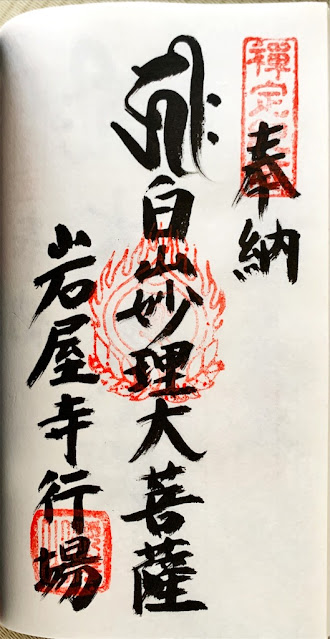 禪定
奉納
白山妙理大菩薩
岩屋寺行場